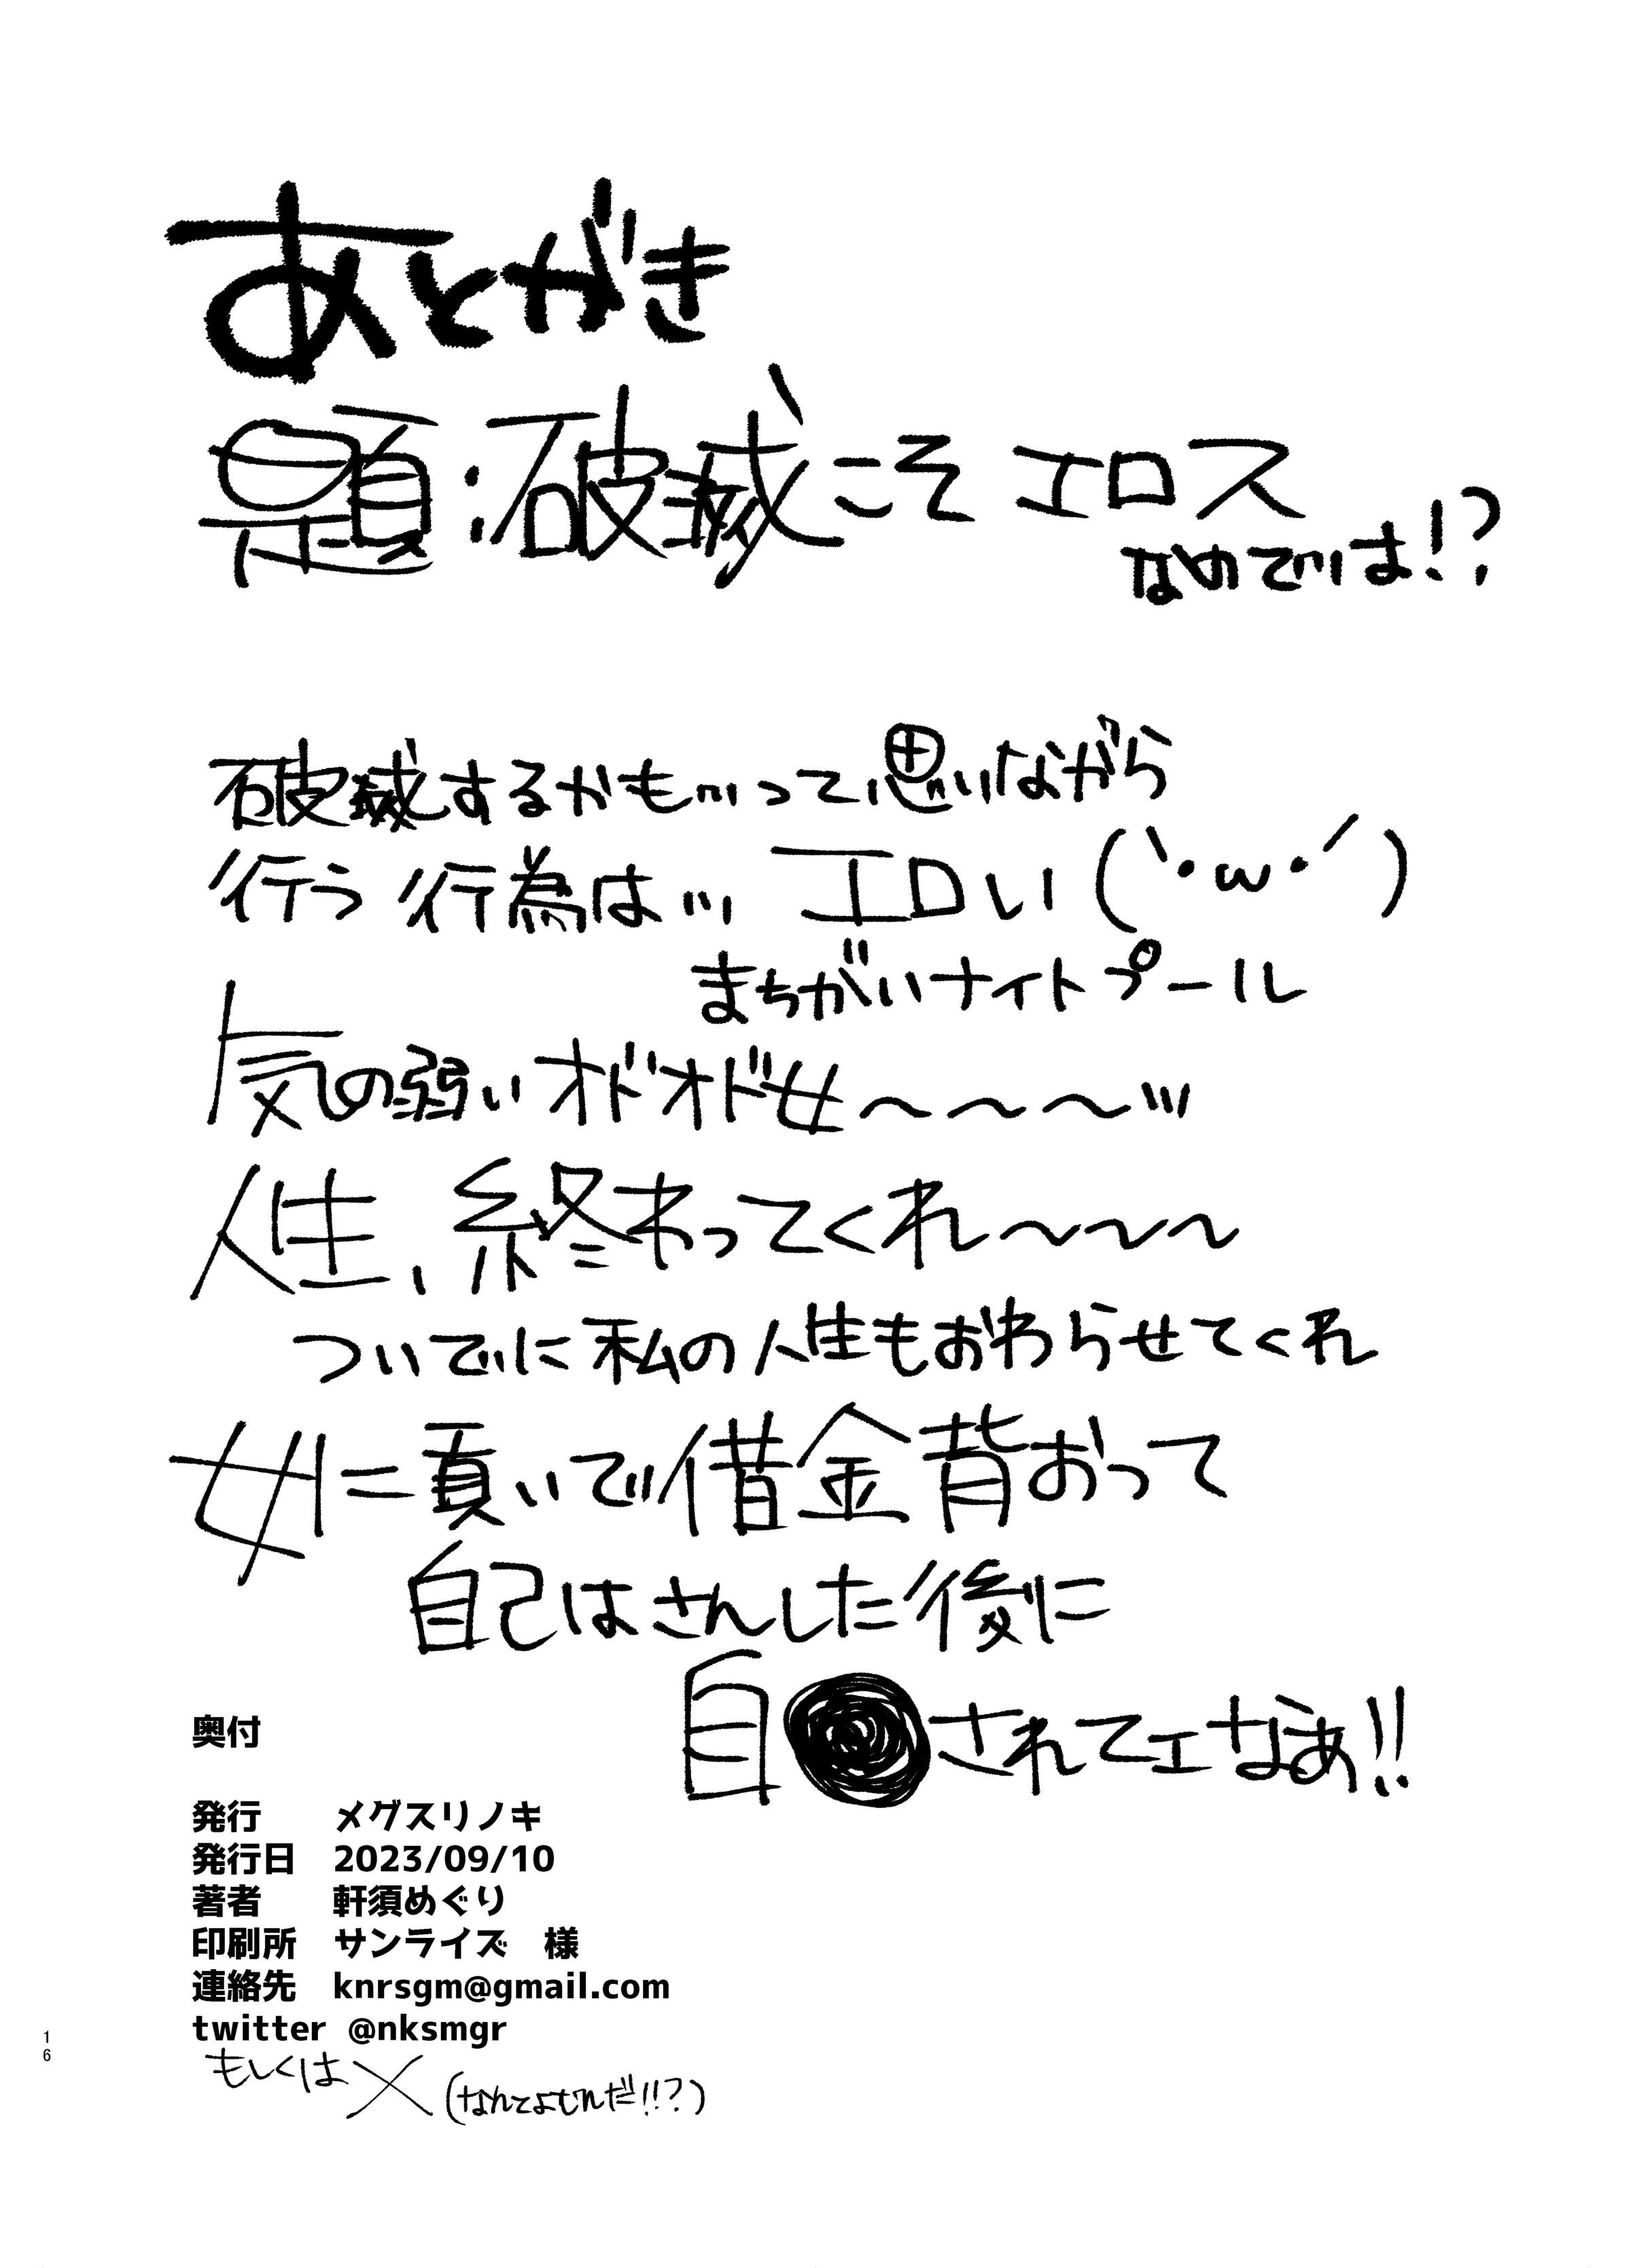 あとがき
題:破滅こそエロス
なのでは!?
破滅するかも…って思いながら
行う行為は… エロい(`・ω・´)
まちがいナイトプール
気の弱いオドオド女～～～…
人生、終わってくれ～～～
ついでに私の人生もおわらせてくれ
女に貢いで借金背おって
自己はさんした後に
自●されてエなあ!!
奥付
発行 メグスリノキ
発行日 2023/09/10
著者 軒須めぐり
印刷所 サンライズ 様
連絡先 knrsgm@gmail.com
twitter @nksmgr
もしくはX(なんてよむんだ!!?)
16